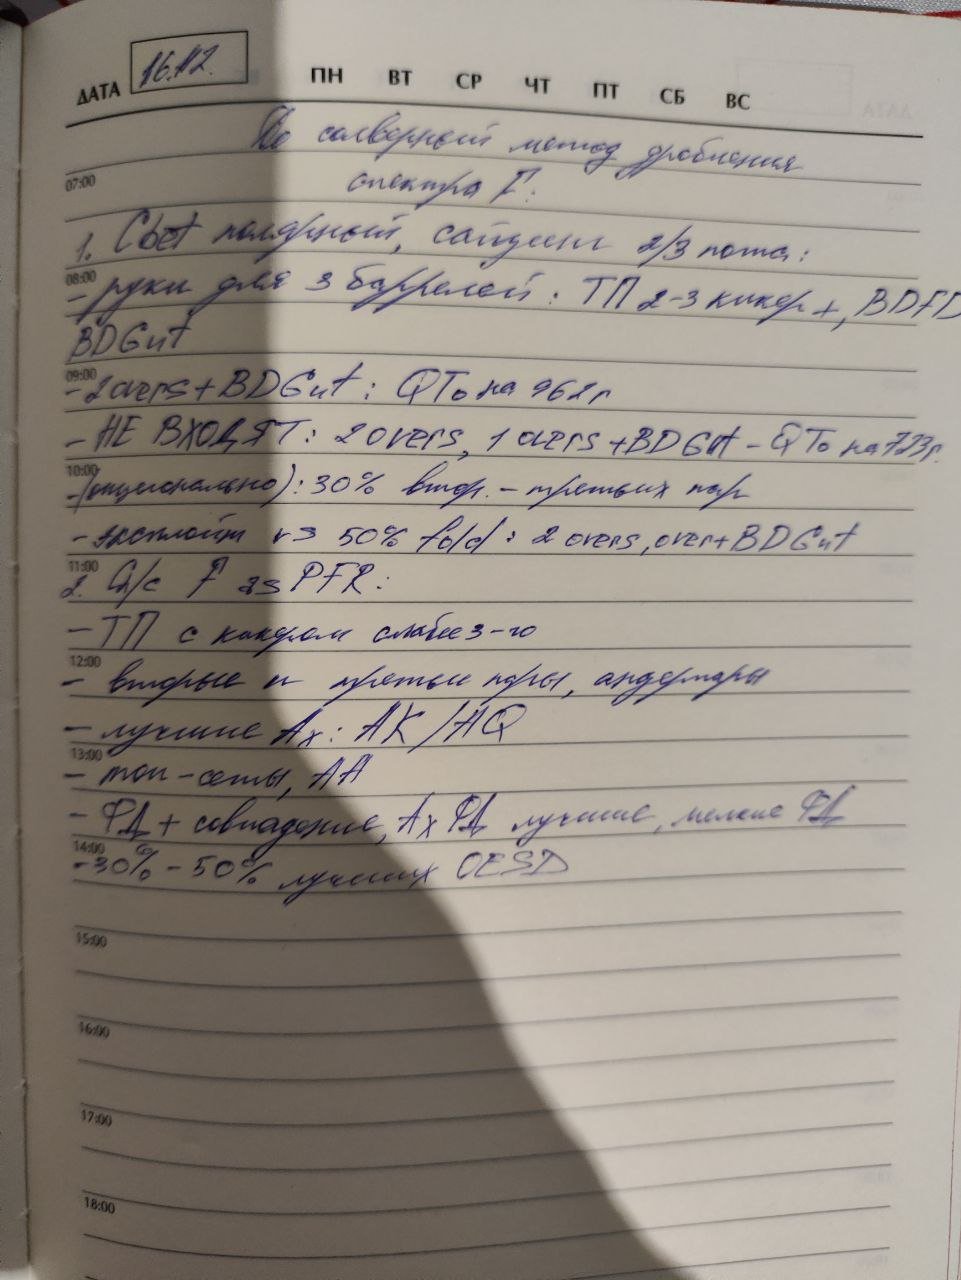 ДАТА 16.12. ПН ВТ СР ЧТ ПТ СБ ВС
До солверный метод дробления
07:00
спектра F.
1. Cbet полярный, сайзинг 2/3 пота:
08:00
- руки для 3 баррелей: ТП 2-3 кикер+, BDFD
BDGut
09:00
- 2 overs + BDGut: QTo на 962r
- НЕ ВХОДЯТ: 2 overs, 1 overs + BDGut - QTo на 723r.
10:00
- (опционально): 30% втор. - третьих пар
- эксплойт vs 50% fold: 2 overs, over + BDGut
11:00
2. Ch/c F as PFR:
- ТП с кикером слабее 3-го
12:00
- вторые и третьи пары, андерпары
- лучшие Ax: AK/AQ
13:00
- топ-сеты, AA
- ФД + совпадение, Ax ФД лучшие, мелкие ФД
14:00
- 30% - 50% лучших OESD
15:00
16:00
17:00
18:00